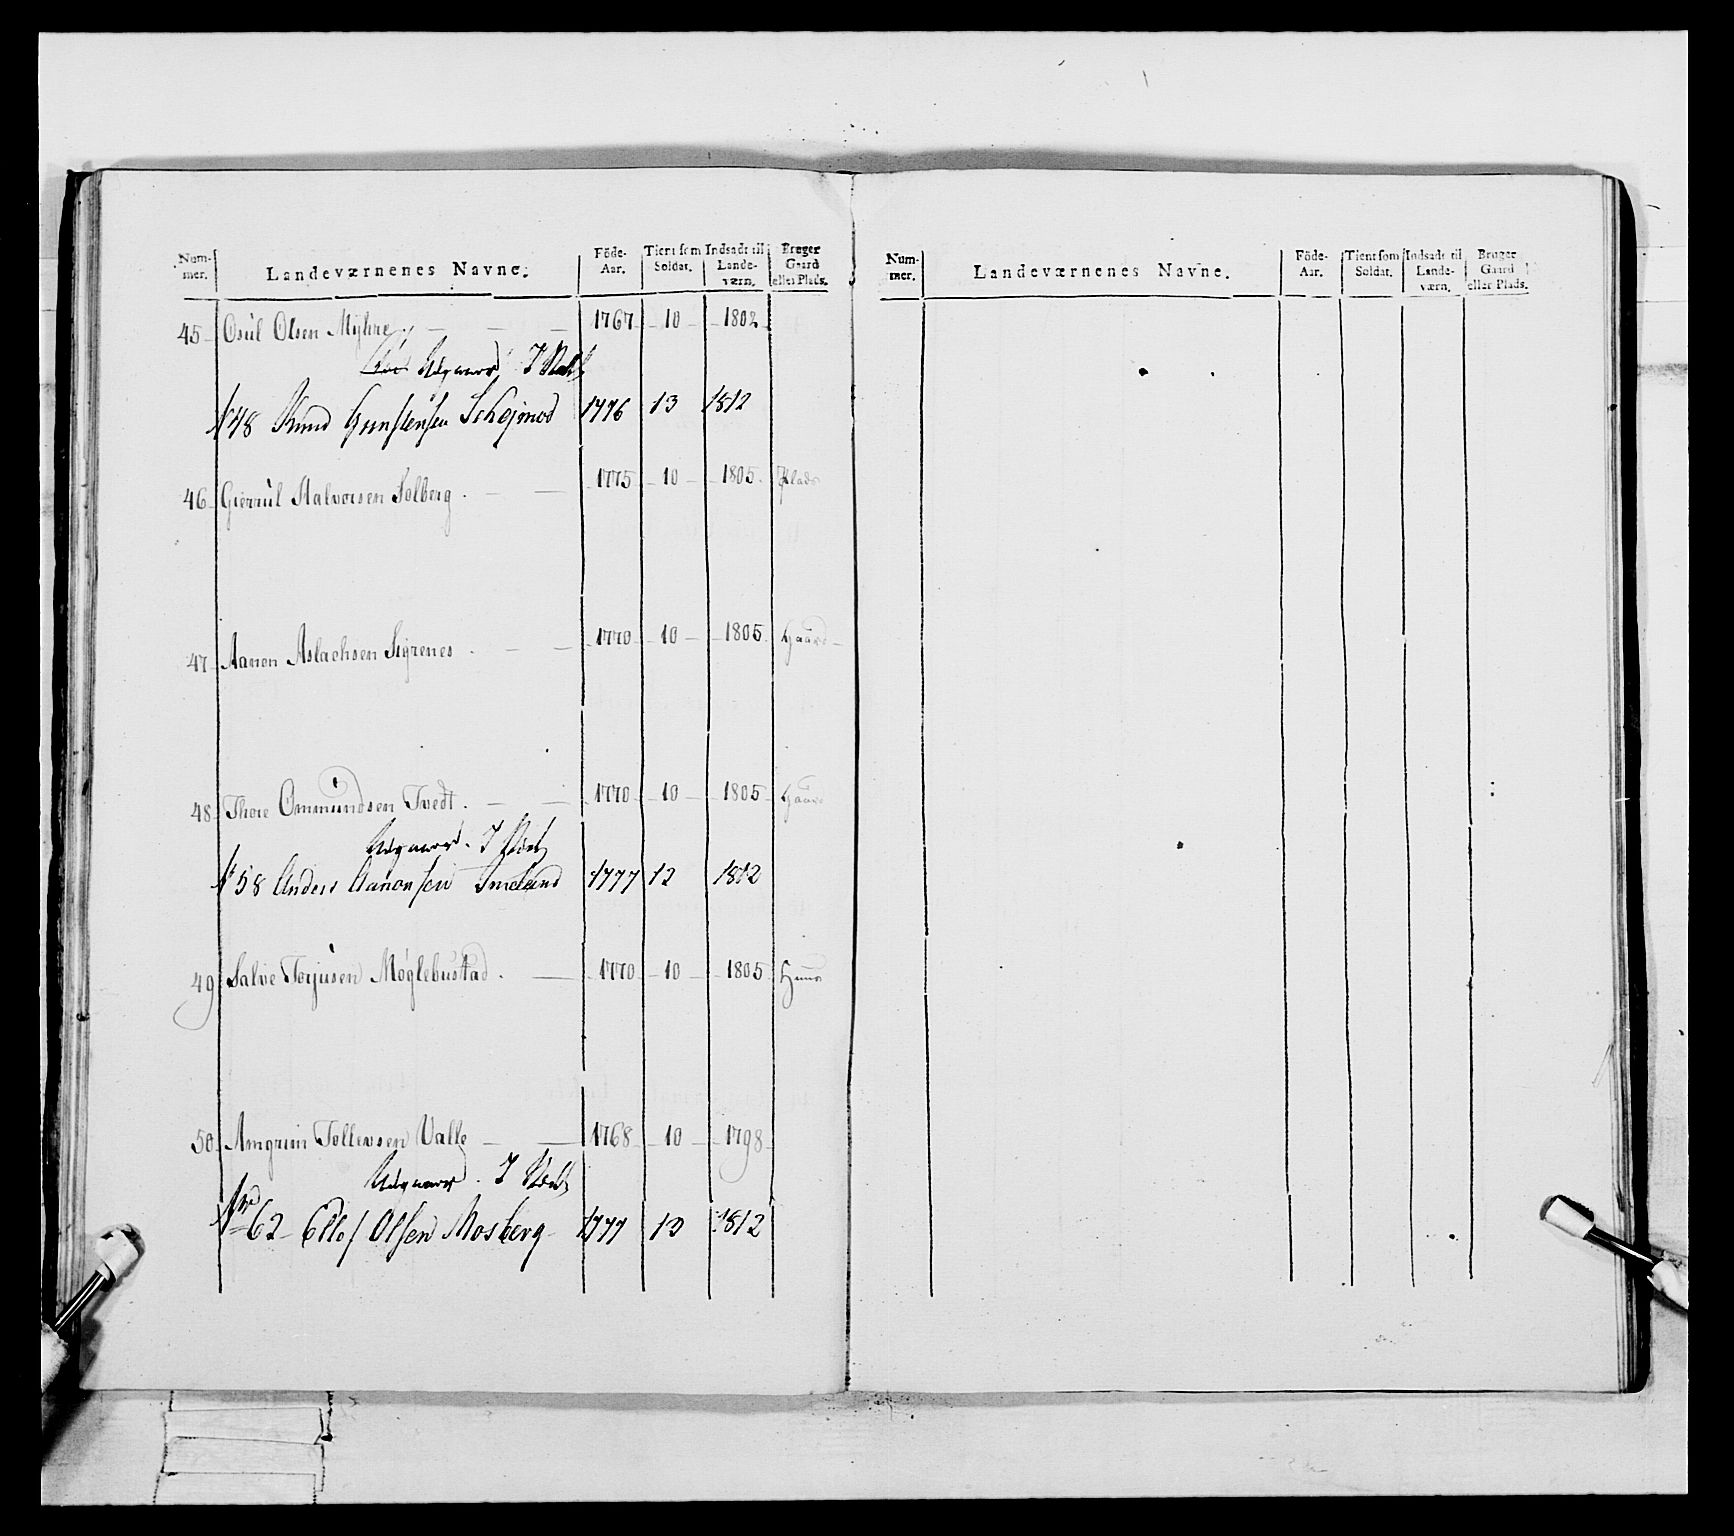 Num-
mer.
Landeværnenes Navne.
Föde-
Aar.
Tient som
Soldat.
Indsadt til
Lande-
værn.
Bruger
Gaard
eller Plads.
45 Osul Olsen Myhre 1767 10 1802
Udgaaet I
48 Knud Gunstensen 1776 13 1812
46 Gierrul Halvorsen Solberg 1775 10 1805 Plads
47 Aanen Aslachsen 1770 10 1805 Gaard
48 Thore Ommundsen Tvedt 1770 10 1805 Gaard
I
58 Anders Aanonsen Smeland 1777 12 1812
49 Salve Torjusen Møglebustad 1770 10 1805
50 Arngrim Tollevsen Valle 1768 10 1798
I
No 62 Ellef Olsen Mosberg 1777 13 1812
Num-
mer.
Landeværnenes Navne.
Föde-
Aar.
Tient som
Soldat.
Indsadt til
Lande-
værn.
Bruger
Gaard
eller Plads.